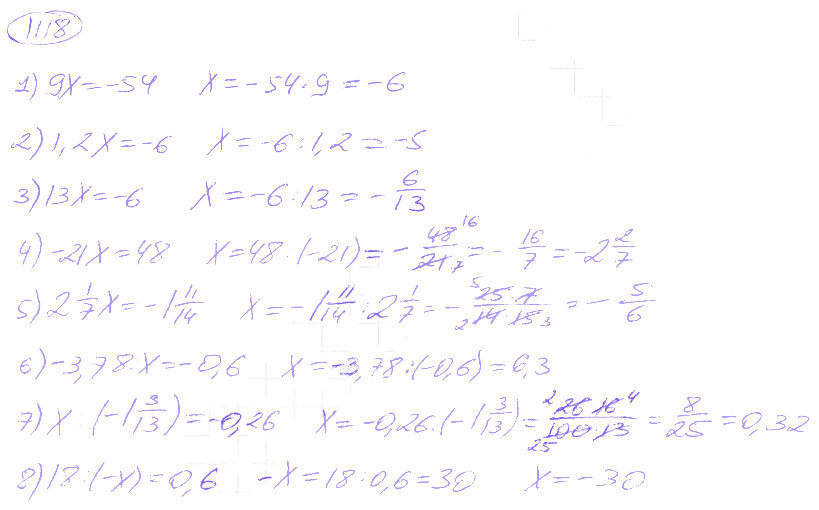 1118
1) 9x = -54    x = -54 : 9 = -6
2) 1,2x = -6    x = -6 : 1,2 = -5
3) 13x = -6    x = -6 : 13 = -6/13
4) -21x = 48    x = 48 : (-21) = -48 16/21 7 = -16/7 = -2 2/7
5) 2 1/7 x = -1 11/14    x = -1 11/14 : 2 1/7 = -5 25·7/2 14·15 3 = -5/6
6) -3,78 : x = -0,6    x = -3,78 : (-0,6) = 6,3
7) x : (-1 3/13) = -0,26    x = -0,26 · (-1 3/13) = 2 26·16 4/25 100·13 = 8/25 = 0,32
8) 18 : (-x) = 0,6    -x = 18 : 0,6 = 30    x = -30